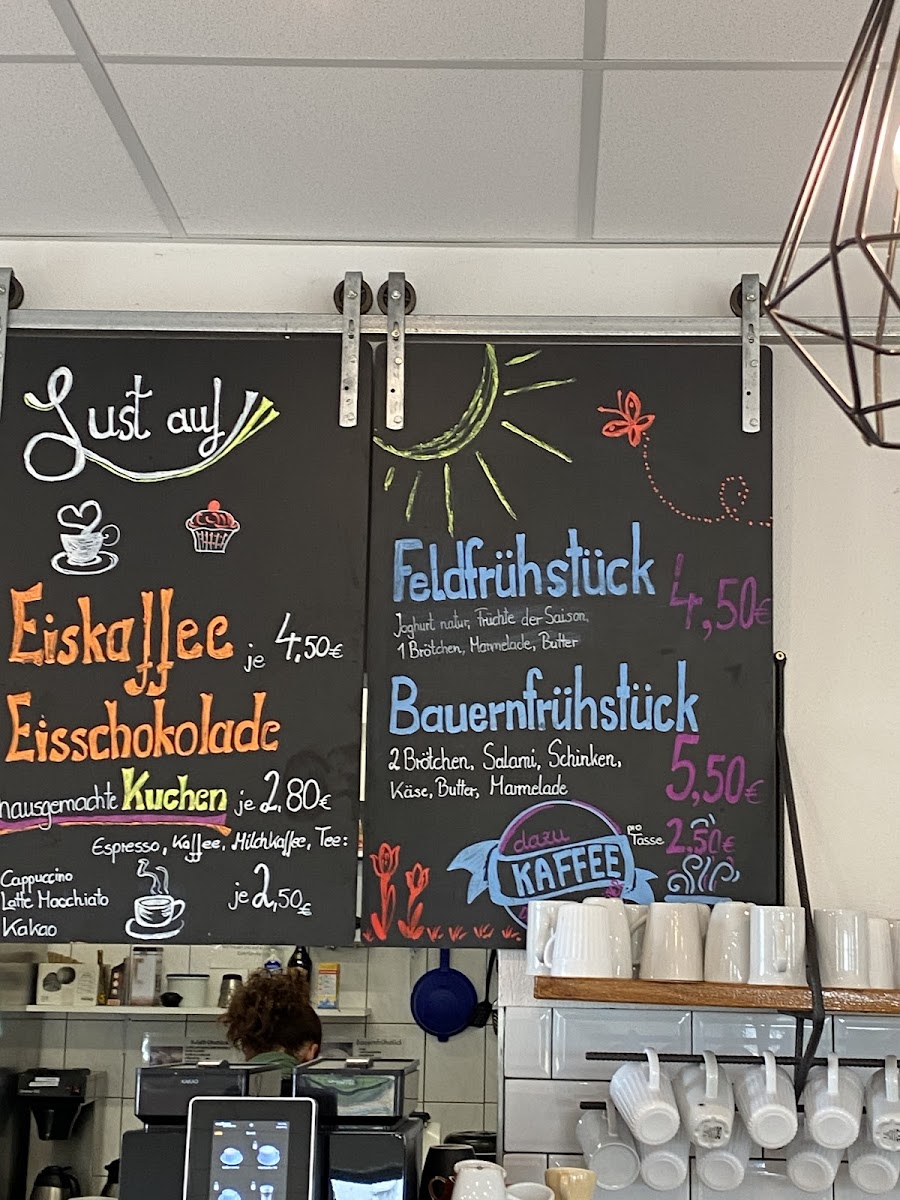 Lust auf
Eiskaffee je 4,50€
Eisschokolade
hausgemachte Kuchen je 2,80€
Espresso, Kaffee, Milchkaffee, Tee:
Cappuccino
Latte Macchiato
Kakao
je 2,50€
Feldfrühstück 4,50€
Joghurt natur, Früchte der Saison,
1 Brötchen, Marmelade, Butter
Bauernfrühstück
2 Brötchen, Salami, Schinken,
Käse, Butter, Marmelade
5,50€
dazu
KAFFEE
pro
Tasse 2,50€
KAKAO